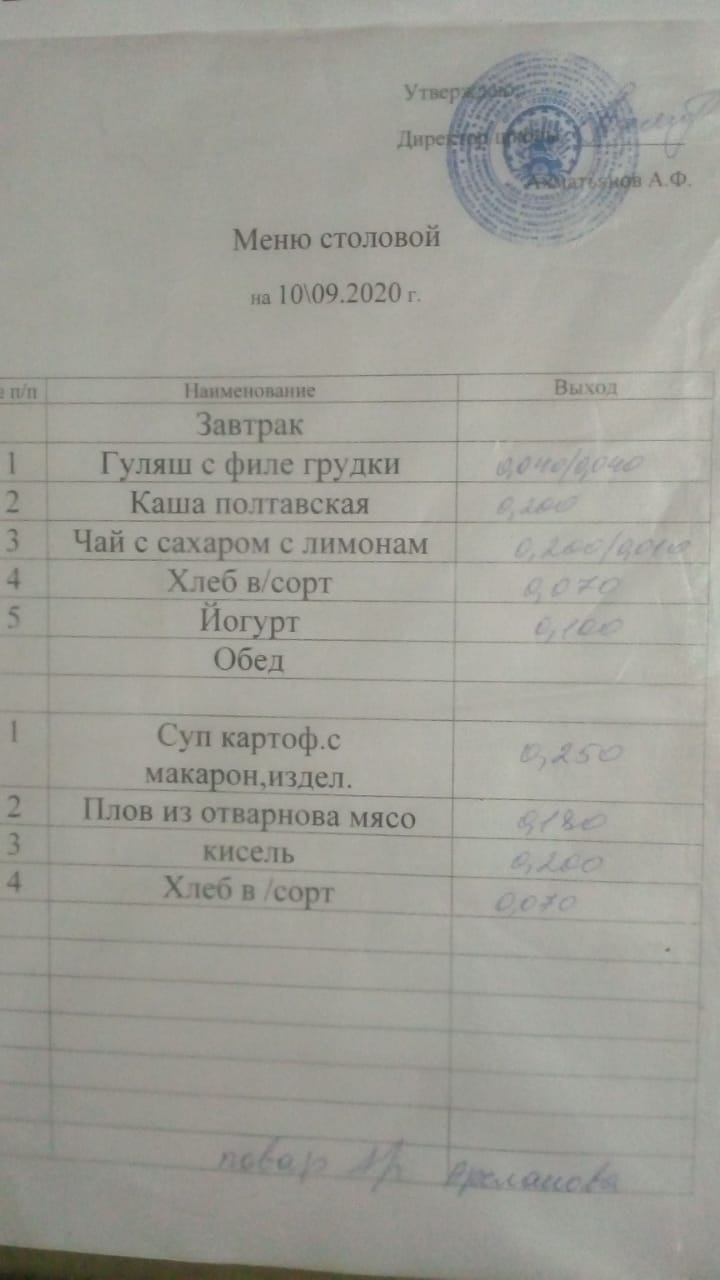 Утверждаю:
Директор школы
Ахматьянов А.Ф.
Меню столовой
на 10\09.2020 г.
п/п Наименование Выход
Завтрак
1 Гуляш с филе грудки 0,040/0,040
2 Каша полтавская 0,200
3 Чай с сахаром с лимонам 0,200/
4 Хлеб в/сорт 0,070
5 Йогурт 0,100
Обед
1 Суп картоф.с
макарон,издел. 0,250
2 Плов из отварнова мясо 0,180
3 кисель 0,200
4 Хлеб в /сорт 0,070
повар Арсланова